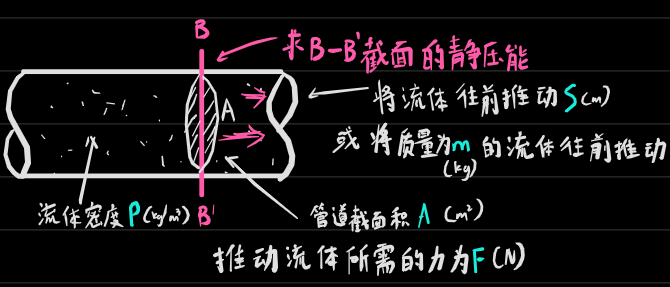 B
求B-B'截面的静压能
A
将流体往前推动S(m)
或将质量为m的流体往前推动
(kg)
流体密度ρ(kg/m³)
B'
管道截面积A (m²)
推动流体所需的力为F(N)